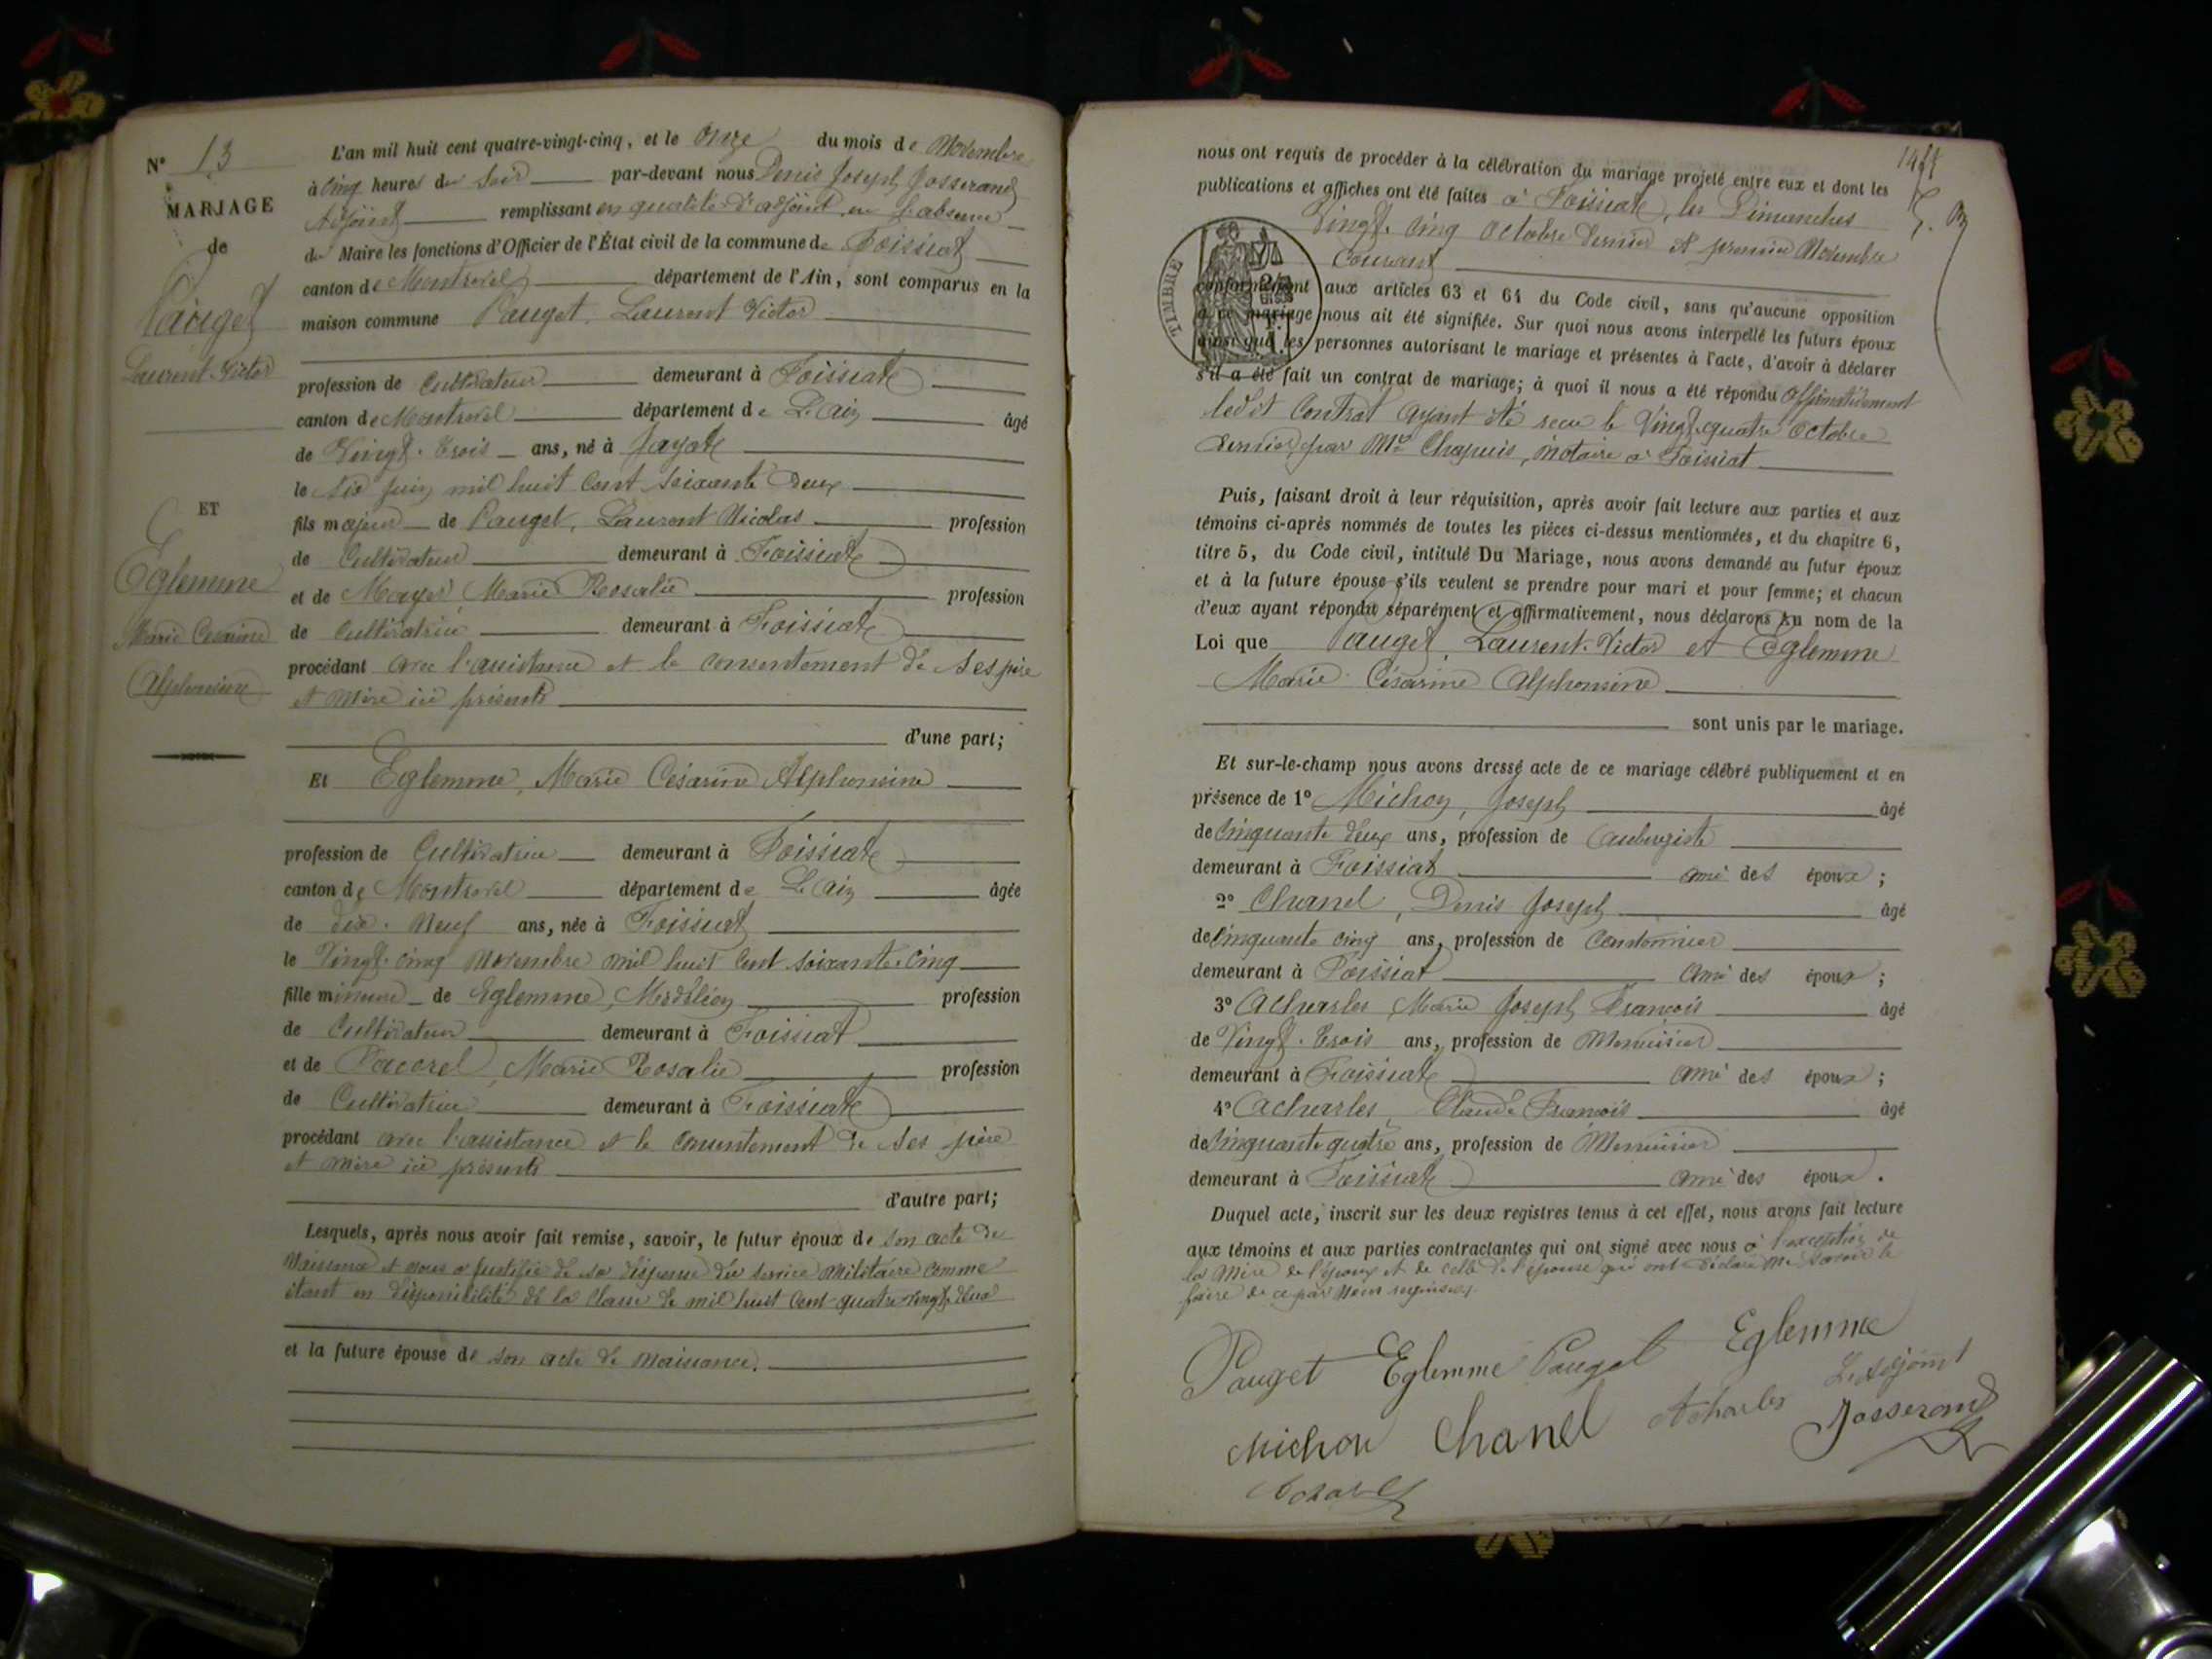 N° 13
MARIAGE
de
Pauget
Laurent Victor
ET
Eglemme
Marie Césarine
Alphonsine
L'an mil huit cent quatre-vingt-cinq, et le onze du mois de Novembre
à cinq heures du soir par-devant nous Denis Joseph Josserand
Adjoint remplissant en qualité d'adjoint en l'absence
du Maire les fonctions d'Officier de l'État civil de la commune de Foissiat
canton de Montrevel département de l'Ain, sont comparus en la
maison commune Pauget, Laurent Victor
profession de Cultivateur demeurant à Foissiat
canton de Montrevel département de L'Ain âgé
de Vingt-trois ans, né à Jayat
le six juin mil huit cent soixante deux
fils majeur de Pauget, Laurent Nicolas profession
de Cultivateur demeurant à Foissiat
et de Marie Rosalie profession
de Cultivatrice demeurant à Foissiat
procédant avec l'assistance et le consentement de ses père
et mère ici présents
d'une part;
Et Eglemme, Marie Césarine Alphonsine
profession de Cultivatrice demeurant à Foissiat
canton de Montrevel département de L'Ain âgée
de dix-neuf ans, née à Foissiat
le Vingt-cinq Novembre mil huit cent soixante-cinq
fille mineure de Eglemme, profession
de Cultivateur demeurant à Foissiat
et de Pacorel, Marie Rosalie profession
de Cultivatrice demeurant à Foissiat
procédant avec l'assistance et le consentement de ses père
et mère ici présents
d'autre part;
Lesquels, après nous avoir fait remise, savoir, le futur époux de son acte de
Naissance et nous a justifié de sa dispense du service militaire comme
étant en disponibilité de la classe de mil huit cent quatre-vingt-deux
et la future épouse de son acte de naissance.
nous ont requis de procéder à la célébration du mariage projeté entre eux et dont les
publications et affiches ont été faites à Foissiat, les Dimanches
Vingt-cinq octobre dernier et premier Novembre
Courant
TIMBRE
conformément aux articles 63 et 64 du Code civil, sans qu'aucune opposition
à ce mariage nous ait été signifiée. Sur quoi nous avons interpellé les futurs époux
ainsi que les personnes autorisant le mariage et présentes à l'acte, d'avoir à déclarer
s'il a été fait un contrat de mariage; à quoi il nous a été répondu affirmativement
ledit Contrat ayant été reçu le Vingt-quatre octobre
dernier par Me Chapuis, notaire à Foissiat
Puis, faisant droit à leur réquisition, après avoir fait lecture aux parties et aux
témoins ci-après nommés de toutes les pièces ci-dessus mentionnées, et du chapitre 6,
titre 5, du Code civil, intitulé Du Mariage, nous avons demandé au futur époux
et à la future épouse s'ils veulent se prendre pour mari et pour femme; et chacun
d'eux ayant répondu séparément et affirmativement, nous déclarons au nom de la
Loi que Pauget, Laurent-Victor et Eglemme
Marie Césarine Alphonsine
sont unis par le mariage.
Et sur-le-champ nous avons dressé acte de ce mariage célébré publiquement et en
présence de 1° Michon, Joseph âgé
de cinquante deux ans, profession de aubergiste
demeurant à Foissiat ami des époux;
2° Chanel, Denis Joseph âgé
de cinquante cinq ans, profession de Cantonnier
demeurant à Foissiat ami des époux;
3° Acharles Marie Joseph François âgé
de Vingt-trois ans, profession de Menuisier
demeurant à Foissiat ami des époux;
4° Acharles, Claude François âgé
de cinquante quatre ans, profession de Menuisier
demeurant à Foissiat ami des époux.
Duquel acte, inscrit sur les deux registres tenus à cet effet, nous avons fait lecture
aux témoins et aux parties contractantes qui ont signé avec nous à l'exception de
la mère de l'époux et de celle de l'épouse qui ont déclaré ne savoir le
faire de ce par nous requises.
Pauget Eglemme Pauget Eglemme
Michon Chanel Acharles L'adjoint
Josserand